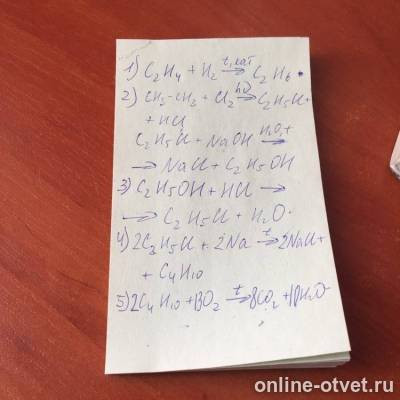 1) C2H4 + H2 t,кат → C2H6.
2) CH3-CH3 + Cl2 hν → C2H5Cl+
+ HCl
C2H5Cl + NaOH H2O,t →
→ NaCl + C2H5OH
3) C2H5OH + HCl →
→ C2H5Cl + H2O.
4) 2C2H5Cl + 2Na t → 2NaCl+
+ C4H10
5) 2C4H10 + 13O2 t → 8CO2 + 10H2O
online-otvet.ru